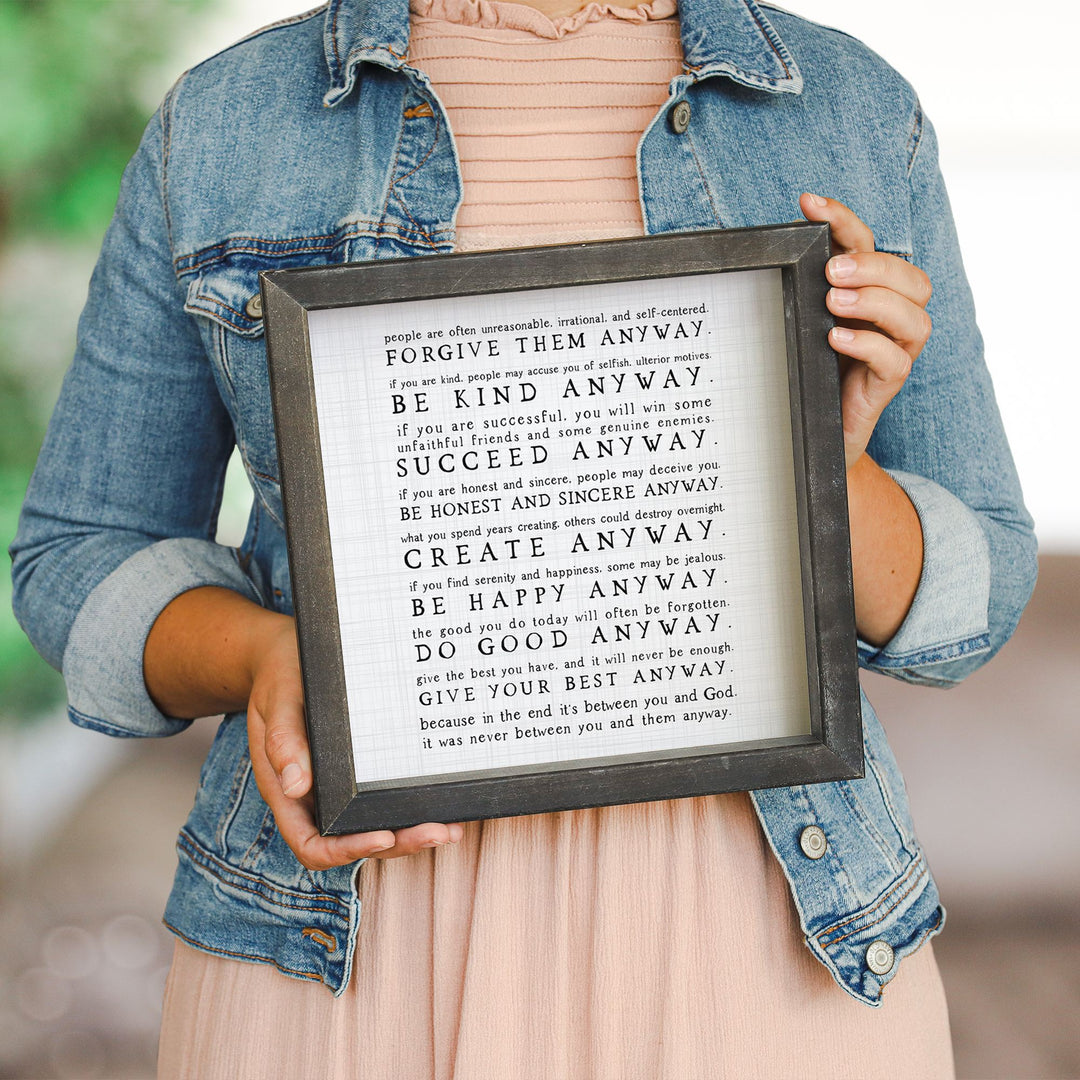 people are often unreasonable, irrational, and self-centered.
FORGIVE THEM ANYWAY.
if you are kind, people may accuse you of selfish, ulterior motives.
BE KIND ANYWAY.
if you are successful, you will win some
unfaithful friends and some genuine enemies.
SUCCEED ANYWAY.
if you are honest and sincere, people may deceive you.
BE HONEST AND SINCERE ANYWAY.
what you spend years creating, others could destroy overnight.
CREATE ANYWAY.
if you find serenity and happiness, some may be jealous.
BE HAPPY ANYWAY.
the good you do today will often be forgotten.
DO GOOD ANYWAY.
give the best you have, and it will never be enough.
GIVE YOUR BEST ANYWAY.
because in the end it's between you and God.
it was never between you and them anyway.